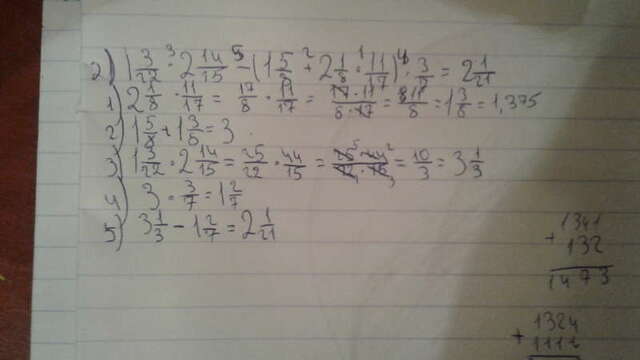 2) 1 3/22 · 2 14/15 − (1 5/8 + 2 1/8 · 11/17) · 3/7 = 2 1/21
1) 2 1/8 · 11/17 = 17/8 · 11/17 = 17·11/8·17 = 11/8 = 1 3/8 = 1,375
2) 1 5/8 + 1 3/8 = 3
3) 1 3/22 · 2 14/15 = 25/22 · 44/15 = = 10/3 = 3 1/3
4) 3 · 3/7 = 1 2/7
5) 3 1/3 − 1 2/7 = 2 1/21
1341
+ 132
1473
1324
+